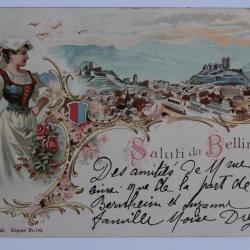 Saluti da Bellin
Des amitiés de Mme
ainsi que de la part de
Bernheim et Suzanne
famille Moïse Dre
Dépose Nr. 102